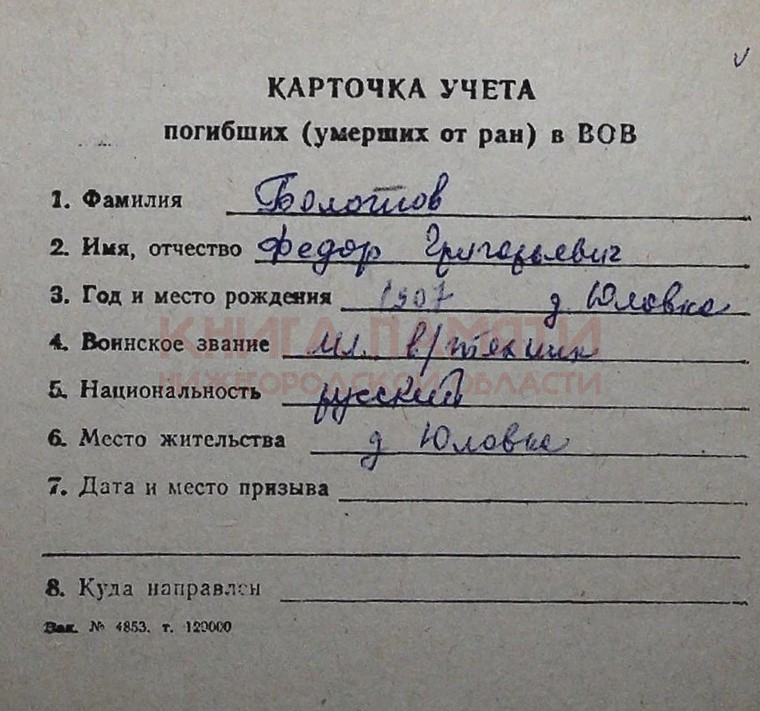 КАРТОЧКА УЧЕТА
погибших (умерших от ран) в ВОВ
1. Фамилия Болотов
2. Имя, отчество Федор Григорьевич
3. Год и место рождения 1907 д Юловка
КНИГА ПАМЯТИ
4. Воинское звание мл. в/техник
НИЖЕГОРОДСКОЙ ОБЛАСТИ
5. Национальность русский
6. Место жительства д Юловка
7. Дата и место призыва
8. Куда направлен
Зак. № 4853. т. 120000